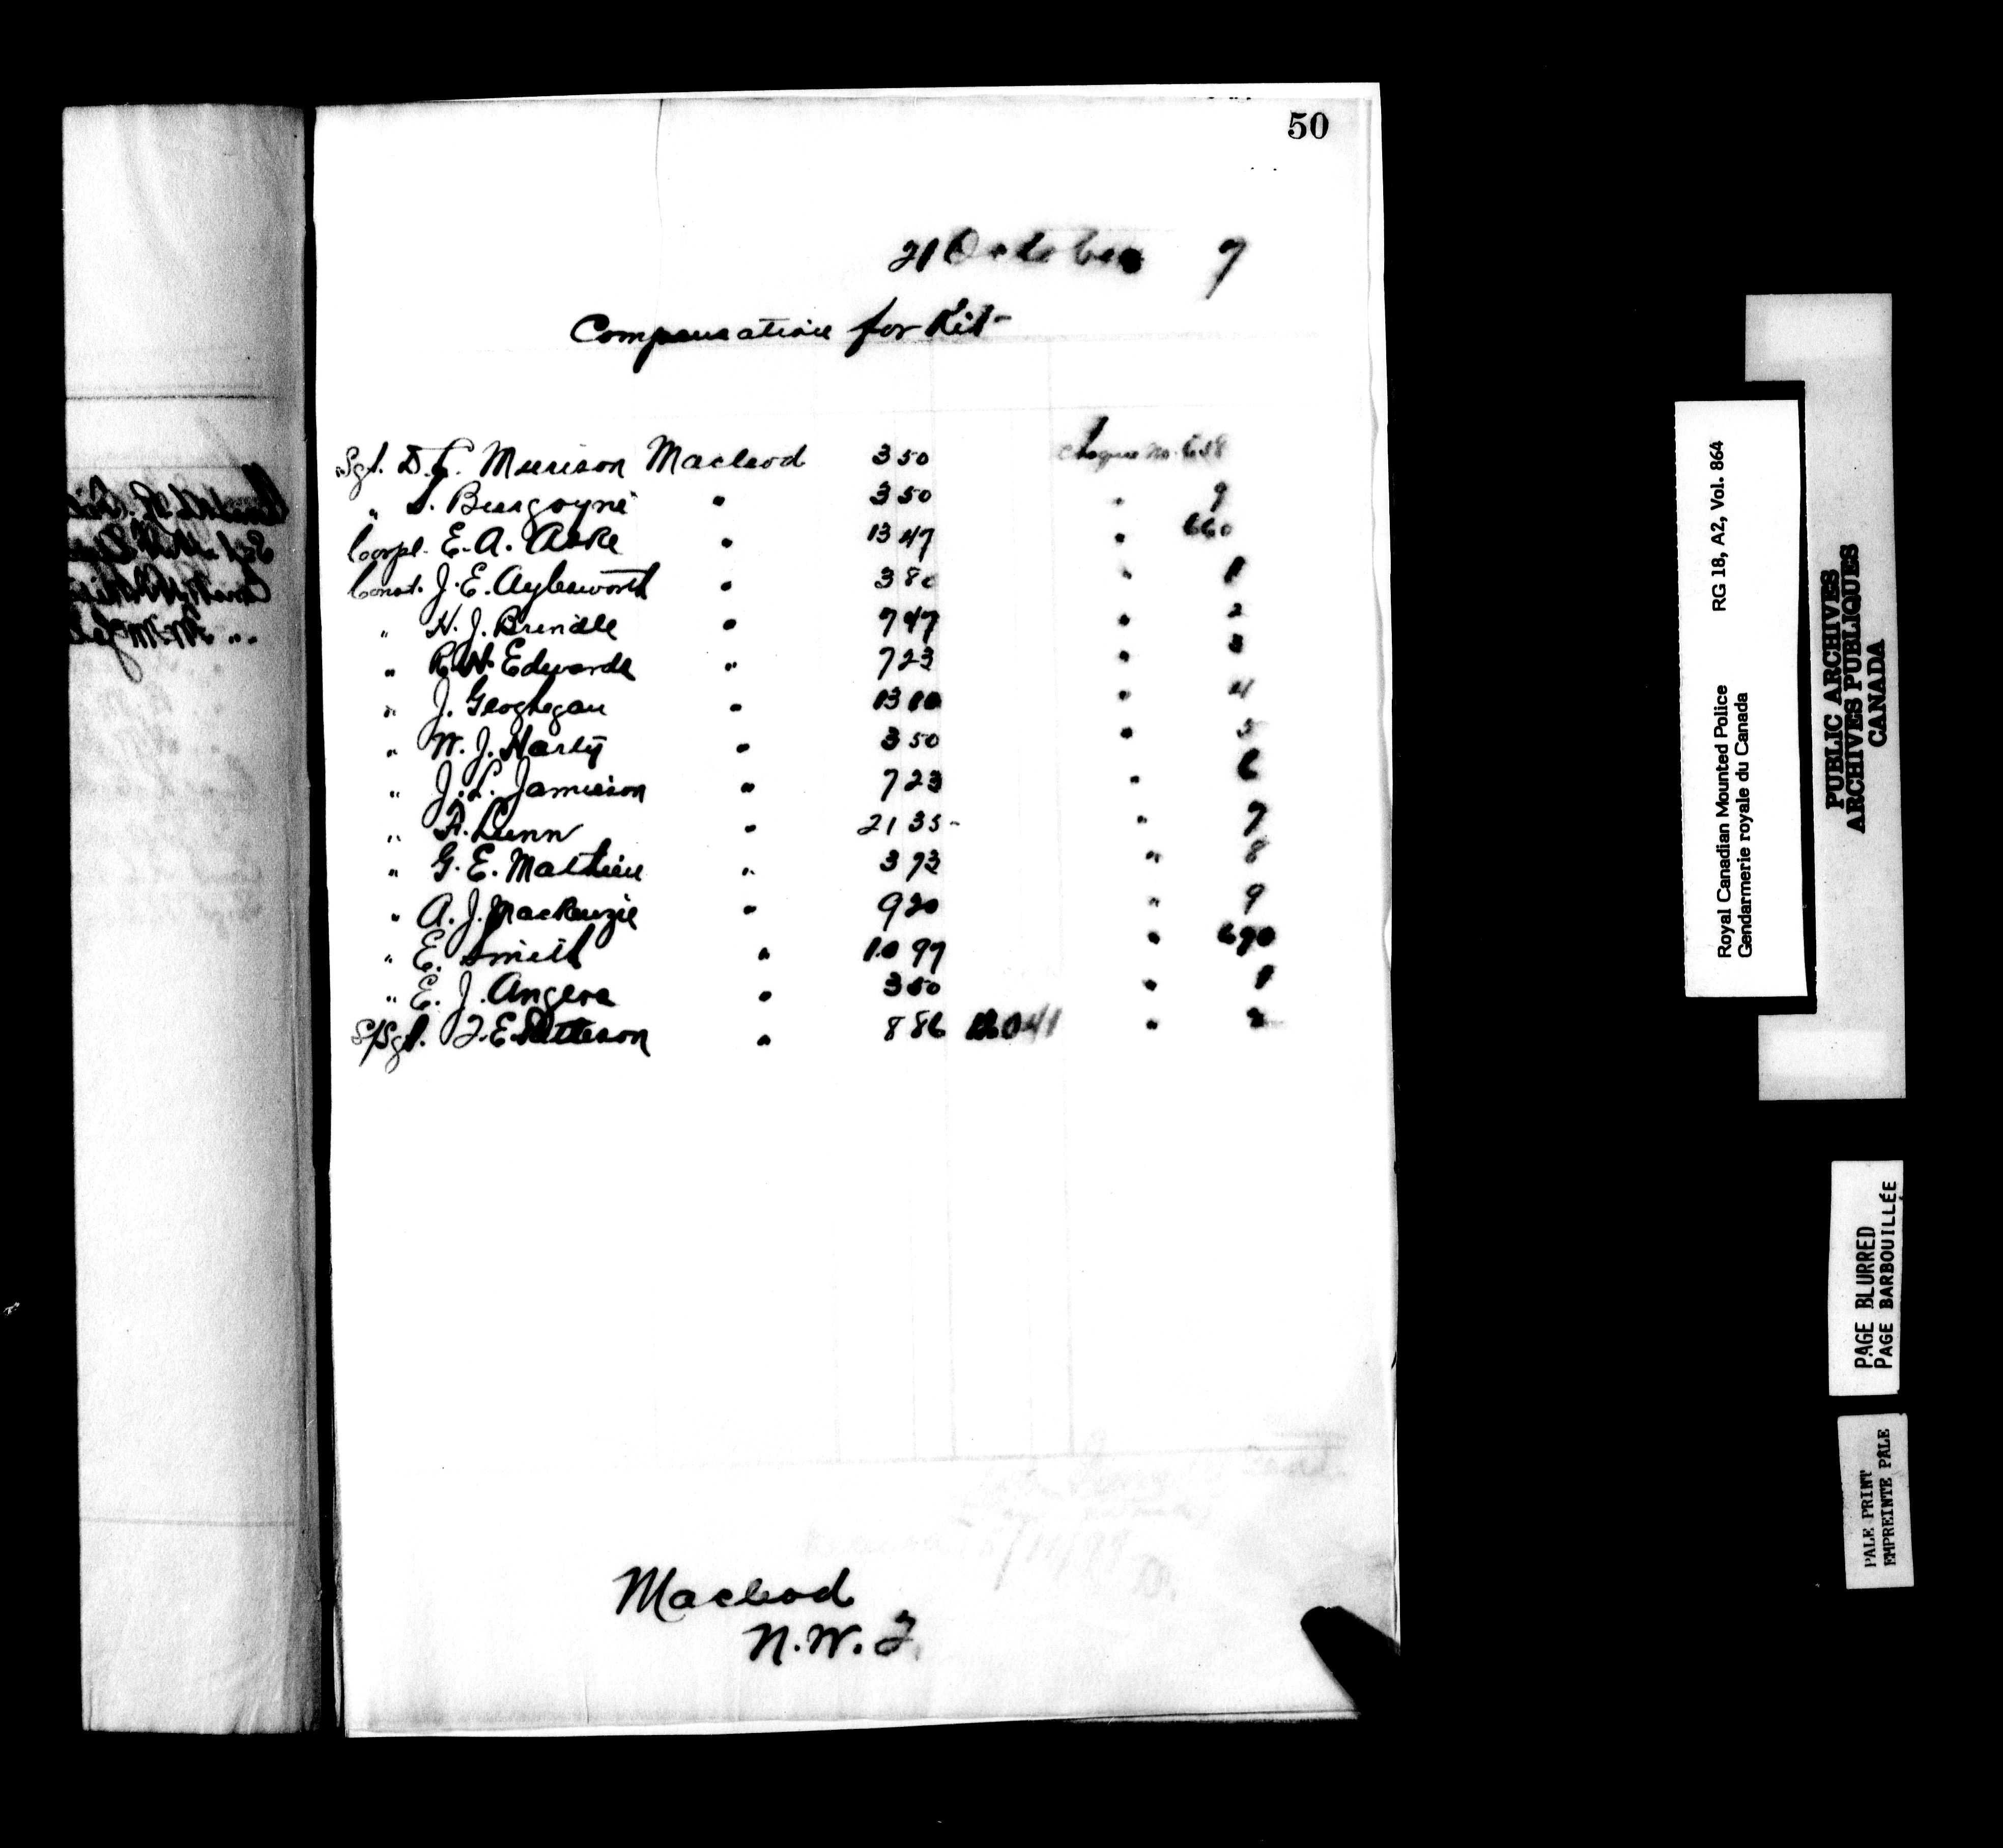 50
21 October 7
Compensation for Kit-
Sgt. D. Murison Macleod 3 50 cheque no. 658
" S. Burgoyne " 3 50 " 9
Corpl. E. A. Aske " 13 47 " 660
Const. J. E. Aylesworth " 3 80 " 1
" H. J. Brindle " 7 47 " 2
" R. H. Edwards " 7 23 " 3
" J. Geoghegan " 13 10 " 4
" W. J. Harty " 3 50 " 5
" J. L. Jamieson " 7 23 " 6
" A. Lunn " 21 35- " 7
" G. E. Mathieu " 3 73 " 8
" A. J. MacKenzie " 9 20 " 9
" E. Smith " 10 97 " 670
" E. J. Angers " 3 50 " 1
S/Sgt. J. E. Patteson " 8 86 " 2
Macleod
N. W. T.
Royal Canadian Mounted Police RG 18, A2, Vol. 864
Gendarmerie royale du Canada
PUBLIC ARCHIVES
ARCHIVES PUBLIQUES
CANADA
PAGE BLURRED
PAGE BARBOUILLÉE
PALE PRINT
EMPREINTE PÂLE